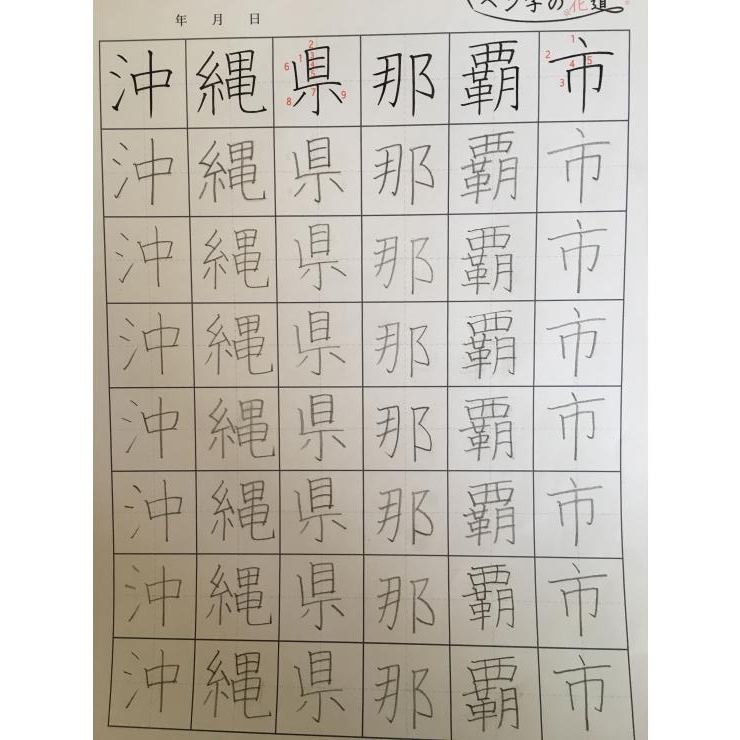 ペン字の花道
年 月 日
沖縄県那覇市
沖縄県那覇市
沖縄県那覇市
沖縄県那覇市
沖縄県那覇市
沖縄県那覇市
沖縄県那覇市
沖縄県那覇市